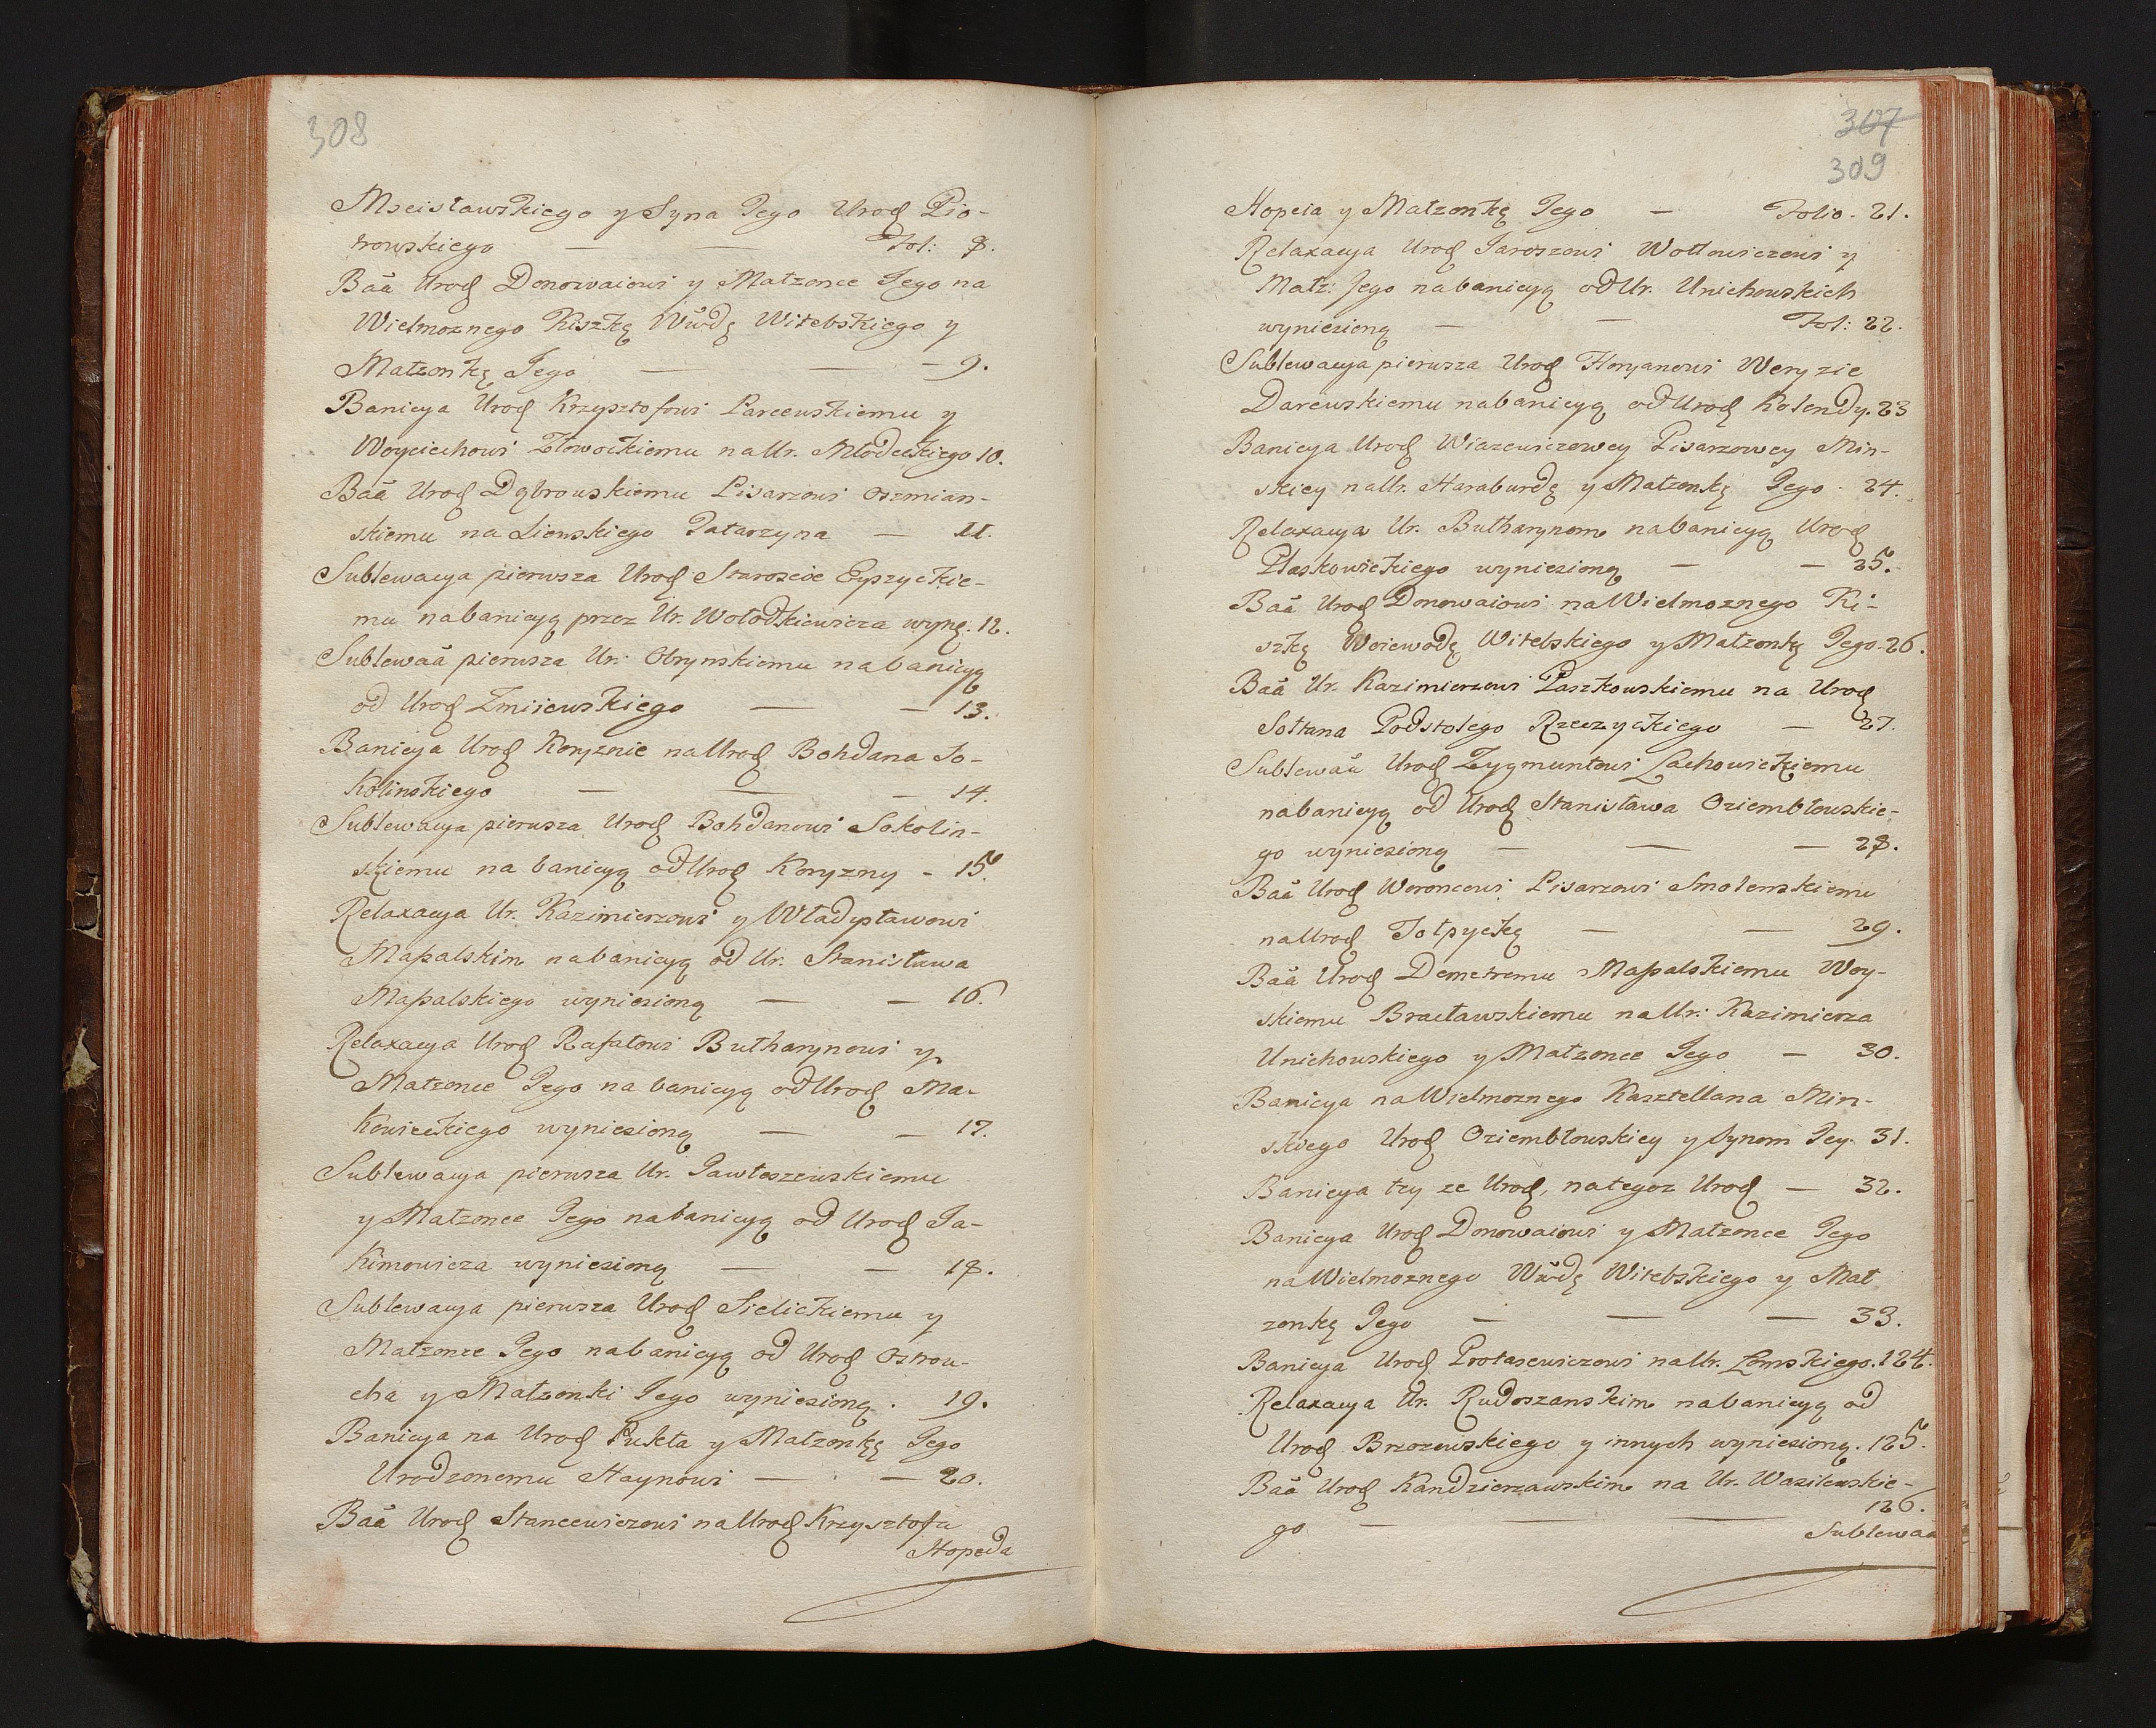 308
Mscisławskiego y Syna Jego Urod Pio-
trowskiego — — Fol: 8.
Baã Urod Donowaiowi y Małzonce Jego na
Wielmoznego Kiszkę Wwdę Witebskiego y
Małzonkę Jego — — — 9.
Banicya Urod Krzysztofowi Parcewskiemu y
Woyciechowi Złowockiemu na Ur. Młodeckiego 10.
Baã Urod Dąbrowskiemu Pisarzowi Oszmian-
skiemu na Lienskiego Jatarzyna — 11.
Sublewacya pierwsza Urod Staroscie Eyszyckie-
mu na banicyą przez Ur. Wołodkiewicza wynę. 12.
Sublewaã pierwsza Ur. Obrynskiemu na banicyą
od Urod Zmiiewskiego — — 13.
Banicya Urod Koryznie na Urod Bohdana So-
kolinskiego — — — 14.
Sublewacya pierwsza Urod Bohdanowi Sokolin-
skiemu na banicyą od Urod Koryzny - 15.
Relaxacya Ur. Kazimierzowi y Władysławowi
Massalskim na banicyą od Ur. Stanisława
Massalskiego wyniesioną — — 16.
Relaxacya Urod Rafałowi Butharynowi y
Małzonce Jego na banicyą od Urod Ma-
kowieckiego wyniesioną — — 17.
Sublewacya pierwsza Ur. Pawłoszewskiemu
y Małzonce Jego na banicyą od Urod Ja-
kimowicza wyniesioną — — 18.
Sublewacya pierwsza Urod Sielickiemu y
Małzonce Jego na banicyą od Urod Ostrou-
cha y Małzonki Jego wyniesioną . 19.
Banicya na Urod Pukta y Małzonkę Jego
Urodzonemu Haynowi — — 20.
Baã Urod Stancewiczowi na Urod Krzysztofa
Hopeda
307
309
Hopeia y Małzonkę Jego — Folio. 21.
Relaxacya Urod Jaroszowi Wołłowiczowi y
Małz: Jego na banicyą od Ur. Unichowskich
wyniesioną — — Fol: 22.
Sublewacya pierwsza Urod Floryanowi Weryzie
Darewskiemu na banicyą od Urod Kolendy. 23
Banicya Urod Wiazewiczowey Pisarzowey Min-
skiey na Ur. Haraburdę y Małzonkę Jego . 24.
Relaxacya Ur. Butharynom na banicyą Urod
Płaskowickiego wyniesioną — — 25.
Baã Urod Donowaiowi na Wielmoznego Ki-
szkę Woiewodę Witebskiego y Małzonkę Jego. 26.
Baã Ur. Kazimierzowi Paszkowskiemu na Urod
Sołtana Podstolego Rzeczyckiego — 27.
Sublewaã Urod Zygmuntowi Lachowickiemu
na banicyą od Urod Stanisława Oziembłowskie-
go wyniesioną — — — 28.
Baã Urod Woroncowi Pisarzowi Smolenskiemu
na Urod Tołpyckę — — 29.
Baã Urod Demetremu Massalskiemu Woy-
skiemu Bracławskiemu na Ur: Kazimierza
Unichowskiego y Małzonce Jego — 30.
Banicya na Wielmoznego Kasztellana Min-
skiego Urod Oziembłowskiey y Synom Jey. 31.
Banicya tey ze Urod, na tegoz Urod — 32.
Banicya Urod Donowaiowi y Małzonce Jego
na Wielmoznego Wwdę Witebskiego y Mał
zonkę Jego — — — 33.
Banicya Urod Protasewiczowi na Ur. Lomskiego. 124.
Relaxacya Ur. Rudoszanskim na banicyą od
Urod Brzozowskiego y innych wyniesioną. 125.
Baã Urod Kandzierzawskim na Ur. Wasilewskie-
go — — — 126.
Sublewaã